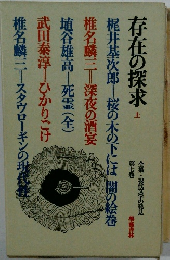 存在の探求 上
梶井基次郎―桜の木の下には 闇の絵巻
椎名麟三―深夜の酒宴
埴谷雄高―死霊(全)
武田泰淳―ひかりごけ
椎名麟三―スタヴローギンの現代性
全集・現代文学の発見
第七巻
學藝書林